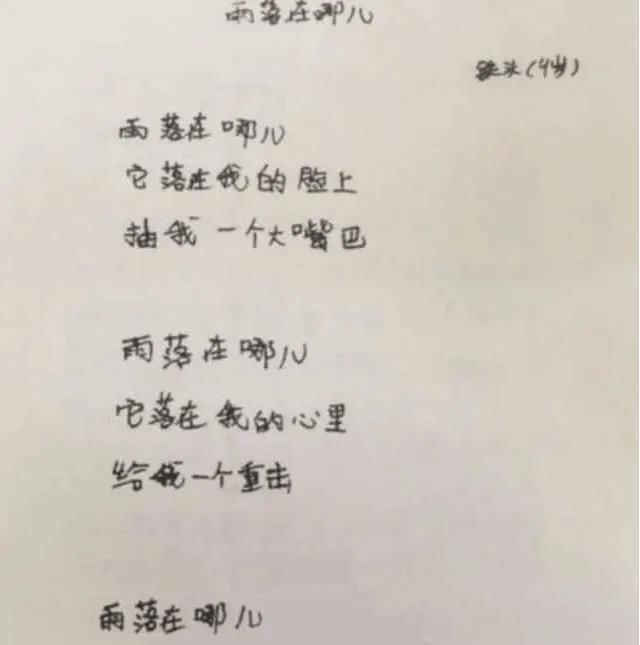 雨落在哪儿
铁头(4岁)
雨落在哪儿
它落在我的脸上
抽我一个大嘴巴
雨落在哪儿
它落在我的心里
给我一个重击
雨落在哪儿